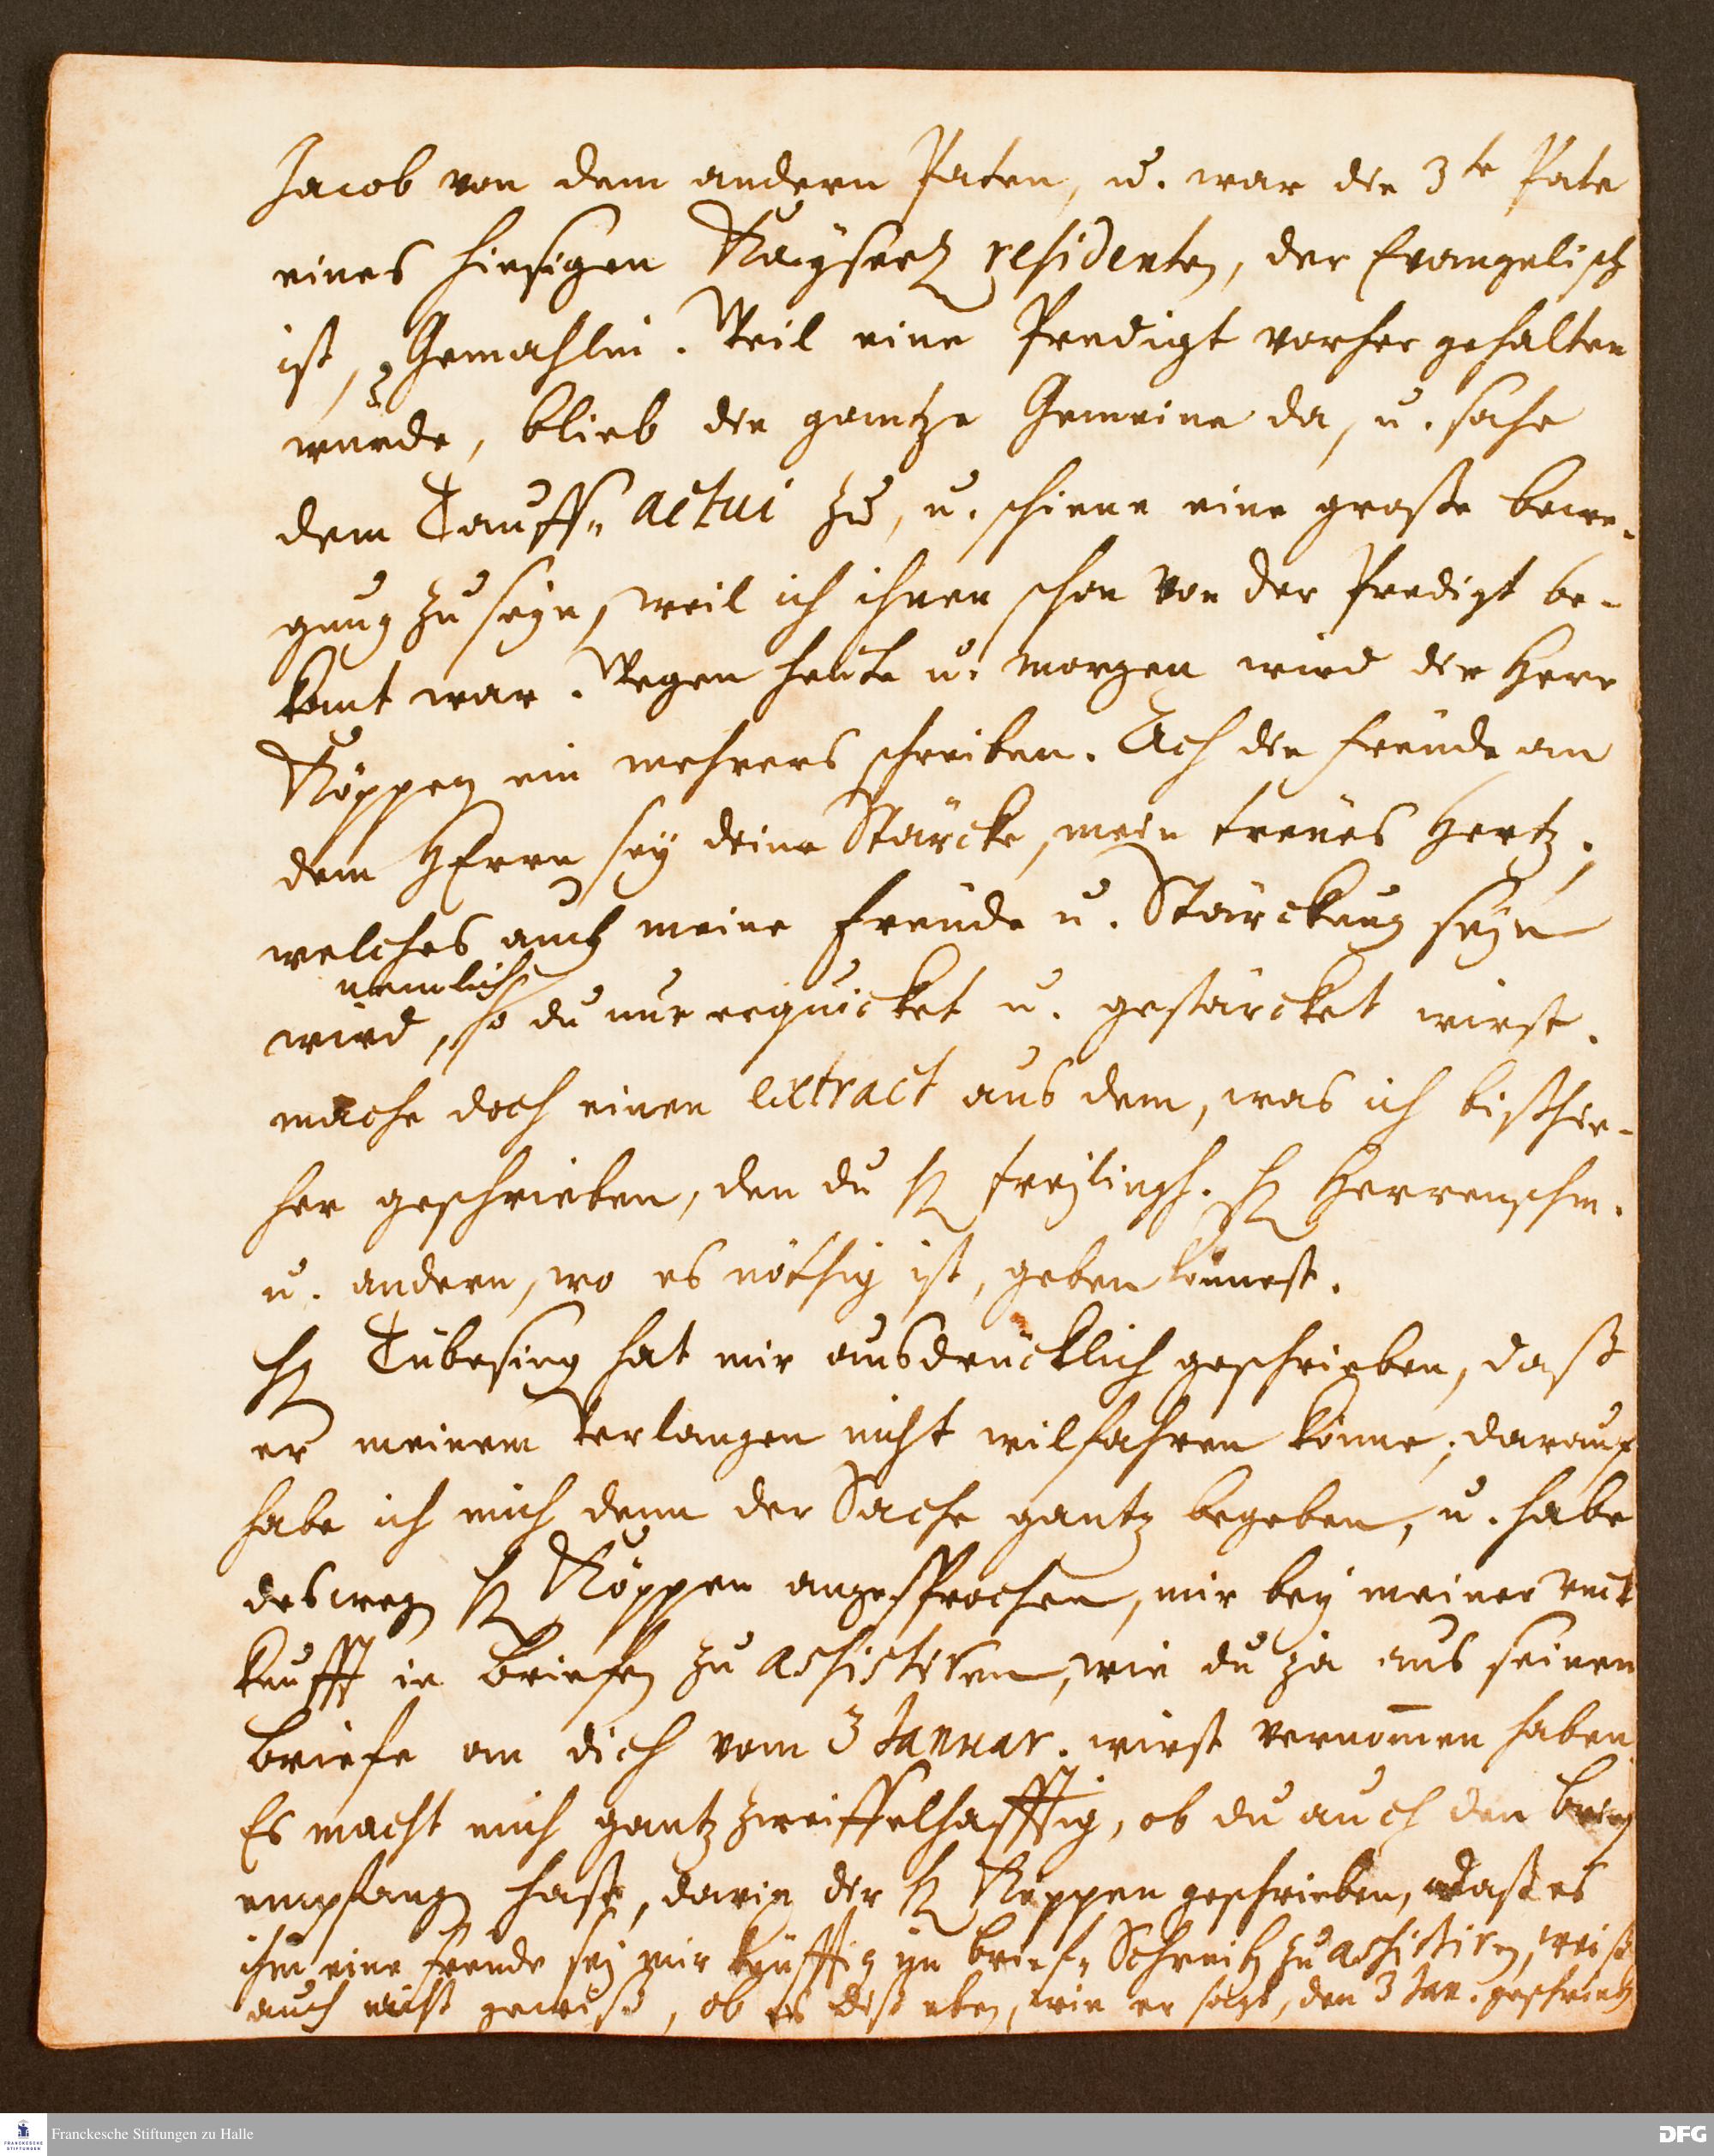 Jacob von dem andern Paten, u. war die 3te Pate
eines hiesigen Kayserl residenten, der Evangelisch
ist, Gemahlin. Weil eine Predigt vorher gehalten
wurde, blieb die gantze Gemeine da, u. sahe
dem Tauff actui zu, u. schiene eine große bewe-
gung zu seyn, weil ich ihnen schon von der Predigt be-
kant war. Wegen heute u. morgen wird der Herr
Köppen ein mehrers schreiben. Ach die Freude an
dem HErrn sey deine Stärcke, mein treües Hertz,
welches auch meine Freude u. Stärckung seyn
nemlich
wird, so du nur erquicket u. gestärcket wirst.
mache doch einen extract aus dem, was ich bißhie-
her geschrieben, den du H Freylingh. H Herrenschm.
u. andern, wo es nöthig ist, geben könnest.
H Tübesing hat mir ausdrücklich geschrieben, daß
er meinem Verlangen nicht wilfahren könne; darauf
habe ich mich denn der Sache gantz begeben, u. habe
deswegen H Köppen angesprochen, mir bey meiner ruck
kunfft in Briefen zu assistiren, wie du ja aus seinem
Briefe an dich vom 3 Januar. wirst vernom̄en haben
Es macht mich gantz zweiffelhafftig, ob du auch den Brief
empfangen hast, darin der H Köppen geschrieben, daß es
ihm eine Freude sey mir künfftig in Brief Schreiben zu assistiren, weiß
auch nicht gewiß, ob es deß eben, wie er sagt, den 3 Jan. geschrieben
Franckesche Stiftungen zu Halle
DFG